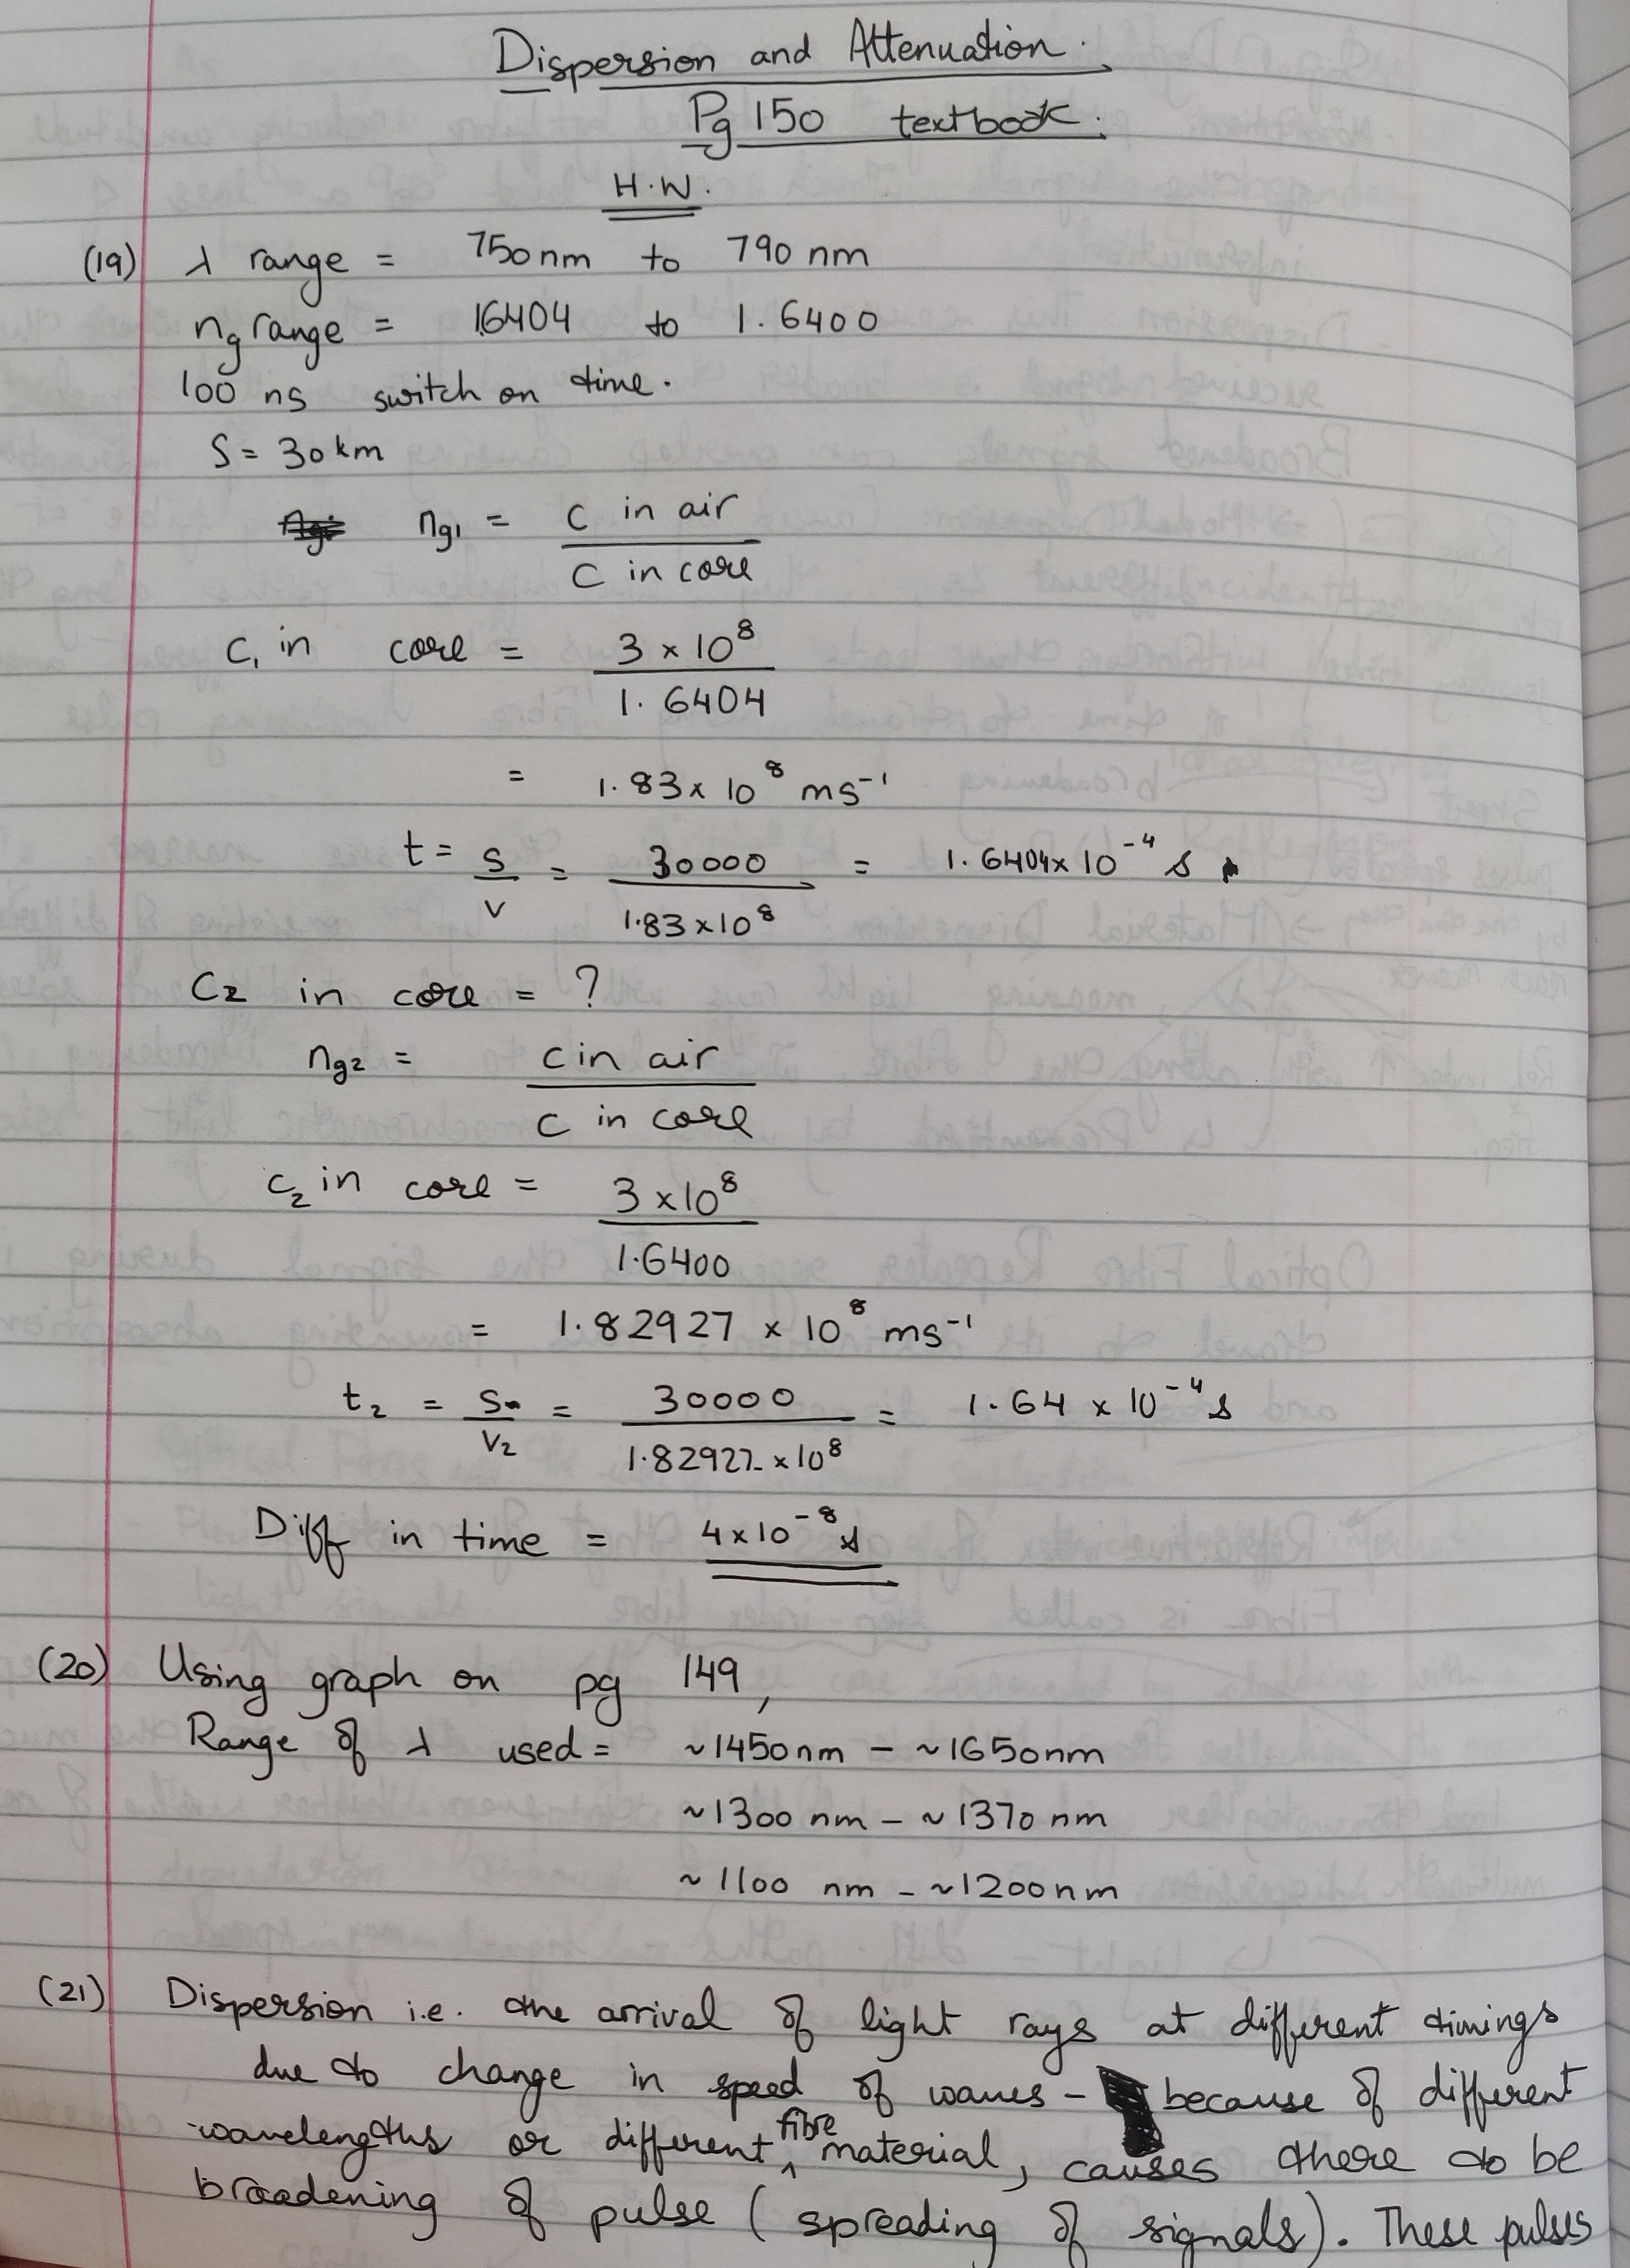 Dispersion and Attenuation.
Pg 150 textbook.
H.W.
(19) λ range = 750nm to 790 nm
ng range = 1.6404 to 1.6400
100 ns switch on time.
S = 30km
ng1 = C in air / C in core
C1 in core = 3 x 10^8 / 1.6404
= 1.83 x 10^8 ms^-1
t = S/V = 30000 / 1.83x10^8 = 1.6404x10^-4 s
C2 in core = ?
ng2 = C in air / C in core
C2 in core = 3 x10^8 / 1.6400
= 1.82927 x 10^8 ms^-1
t2 = S/V2 = 30000 / 1.82927 x10^8 = 1.64 x 10^-4 s
Diff in time = 4x10^-8 s
(20) Using graph on pg 149,
Range of λ used = ~1450nm – ~1650nm
~1300 nm – ~1370 nm
~1100 nm – ~1200nm
(21) Dispersion i.e. the arrival of light rays at different timings
due to change in speed of waves – because of different
wavelengths or different fibre material, causes there to be
broadening of pulse (spreading of signals). These pulses